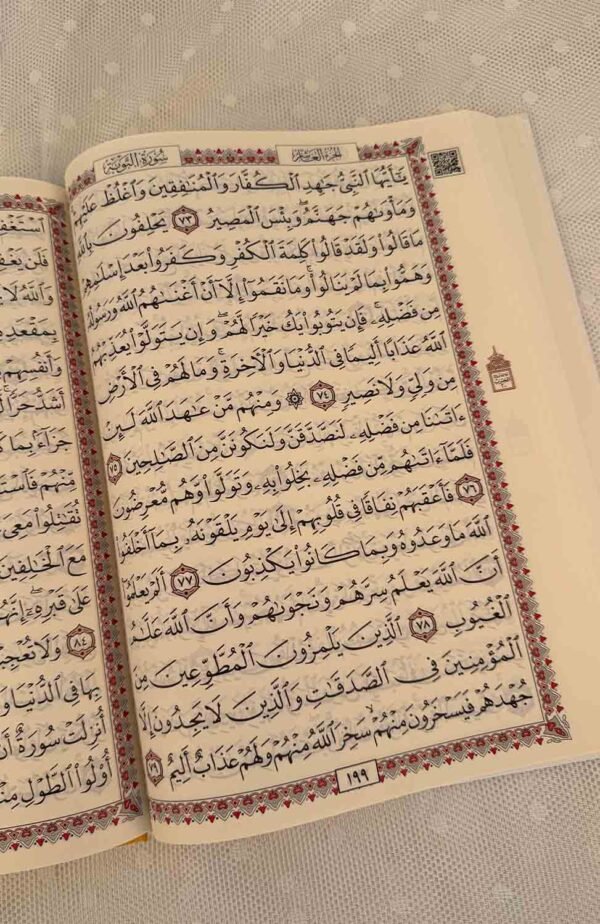 الجزء العاشر
سورة التوبة
يَٰٓأَيُّهَا ٱلنَّبِىُّ جَٰهِدِ ٱلْكُفَّارَ وَٱلْمُنَٰفِقِينَ وَٱغْلُظْ عَلَيْهِمْ
وَمَأْوَىٰهُمْ جَهَنَّمُ ۖ وَبِئْسَ ٱلْمَصِيرُ ٧٣ يَحْلِفُونَ بِٱللَّهِ
مَا قَالُوا۟ وَلَقَدْ قَالُوا۟ كَلِمَةَ ٱلْكُفْرِ وَكَفَرُوا۟ بَعْدَ إِسْلَٰمِهِمْ
وَهَمُّوا۟ بِمَا لَمْ يَنَالُوا۟ ۚ وَمَا نَقَمُوٓا۟ إِلَّآ أَنْ أَغْنَىٰهُمُ ٱللَّهُ وَرَسُولُهُۥ
مِن فَضْلِهِۦ ۚ فَإِن يَتُوبُوا۟ يَكُ خَيْرًا لَّهُمْ ۖ وَإِن يَتَوَلَّوْا۟ يُعَذِّبْهُمُ
ٱللَّهُ عَذَابًا أَلِيمًا فِى ٱلدُّنْيَا وَٱلْءَاخِرَةِ ۚ وَمَا لَهُمْ فِى ٱلْأَرْضِ
مِن وَلِىٍّ وَلَا نَصِيرٍ ٧٤ ۞ وَمِنْهُم مَّنْ عَٰهَدَ ٱللَّهَ لَئِنْ
ءَاتَىٰنَا مِن فَضْلِهِۦ لَنَصَّدَّقَنَّ وَلَنَكُونَنَّ مِنَ ٱلصَّٰلِحِينَ ٧٥
فَلَمَّآ ءَاتَىٰهُم مِّن فَضْلِهِۦ بَخِلُوا۟ بِهِۦ وَتَوَلَّوا۟ وَّهُم مُّعْرِضُونَ
٧٦ فَأَعْقَبَهُمْ نِفَاقًا فِى قُلُوبِهِمْ إِلَىٰ يَوْمِ يَلْقَوْنَهُۥ بِمَآ أَخْلَفُوا۟
ٱللَّهَ مَا وَعَدُوهُ وَبِمَا كَانُوا۟ يَكْذِبُونَ ٧٧ أَلَمْ يَعْلَمُوٓا۟
أَنَّ ٱللَّهَ يَعْلَمُ سِرَّهُمْ وَنَجْوَىٰهُمْ وَأَنَّ ٱللَّهَ عَلَّٰمُ
ٱلْغُيُوبِ ٧٨ ٱلَّذِينَ يَلْمِزُونَ ٱلْمُطَّوِّعِينَ مِنَ
ٱلْمُؤْمِنِينَ فِى ٱلصَّدَقَٰتِ وَٱلَّذِينَ لَا يَجِدُونَ إِلَّا
جُهْدَهُمْ فَيَسْخَرُونَ مِنْهُمْ ۙ سَخِرَ ٱللَّهُ مِنْهُمْ وَلَهُمْ عَذَابٌ أَلِيمٌ ٧٩
١٩٩
فَلَن يَغْفِرَ
وَٱللَّهُ لَا
بِمَقْعَدِهِمْ
وَأَنفُسِهِمْ
أَشَدُّ حَرًّا
جَزَآءًۢ بِمَا
مِّنْهُمْ
تُقَٰتِلُوا۟ مَعِىَ
مَعَ ٱلْخَٰلِفِينَ
عَلَىٰ قَبْرِهِۦٓ ۖ إِنَّهُمْ
٨٤ وَلَا تُعْجِبْكَ
بِهَا فِى ٱلدُّنْيَا
أُنزِلَتْ سُورَةٌ أَنْ
أُو۟لُوا۟ ٱلطَّوْلِ مِنْهُمْ